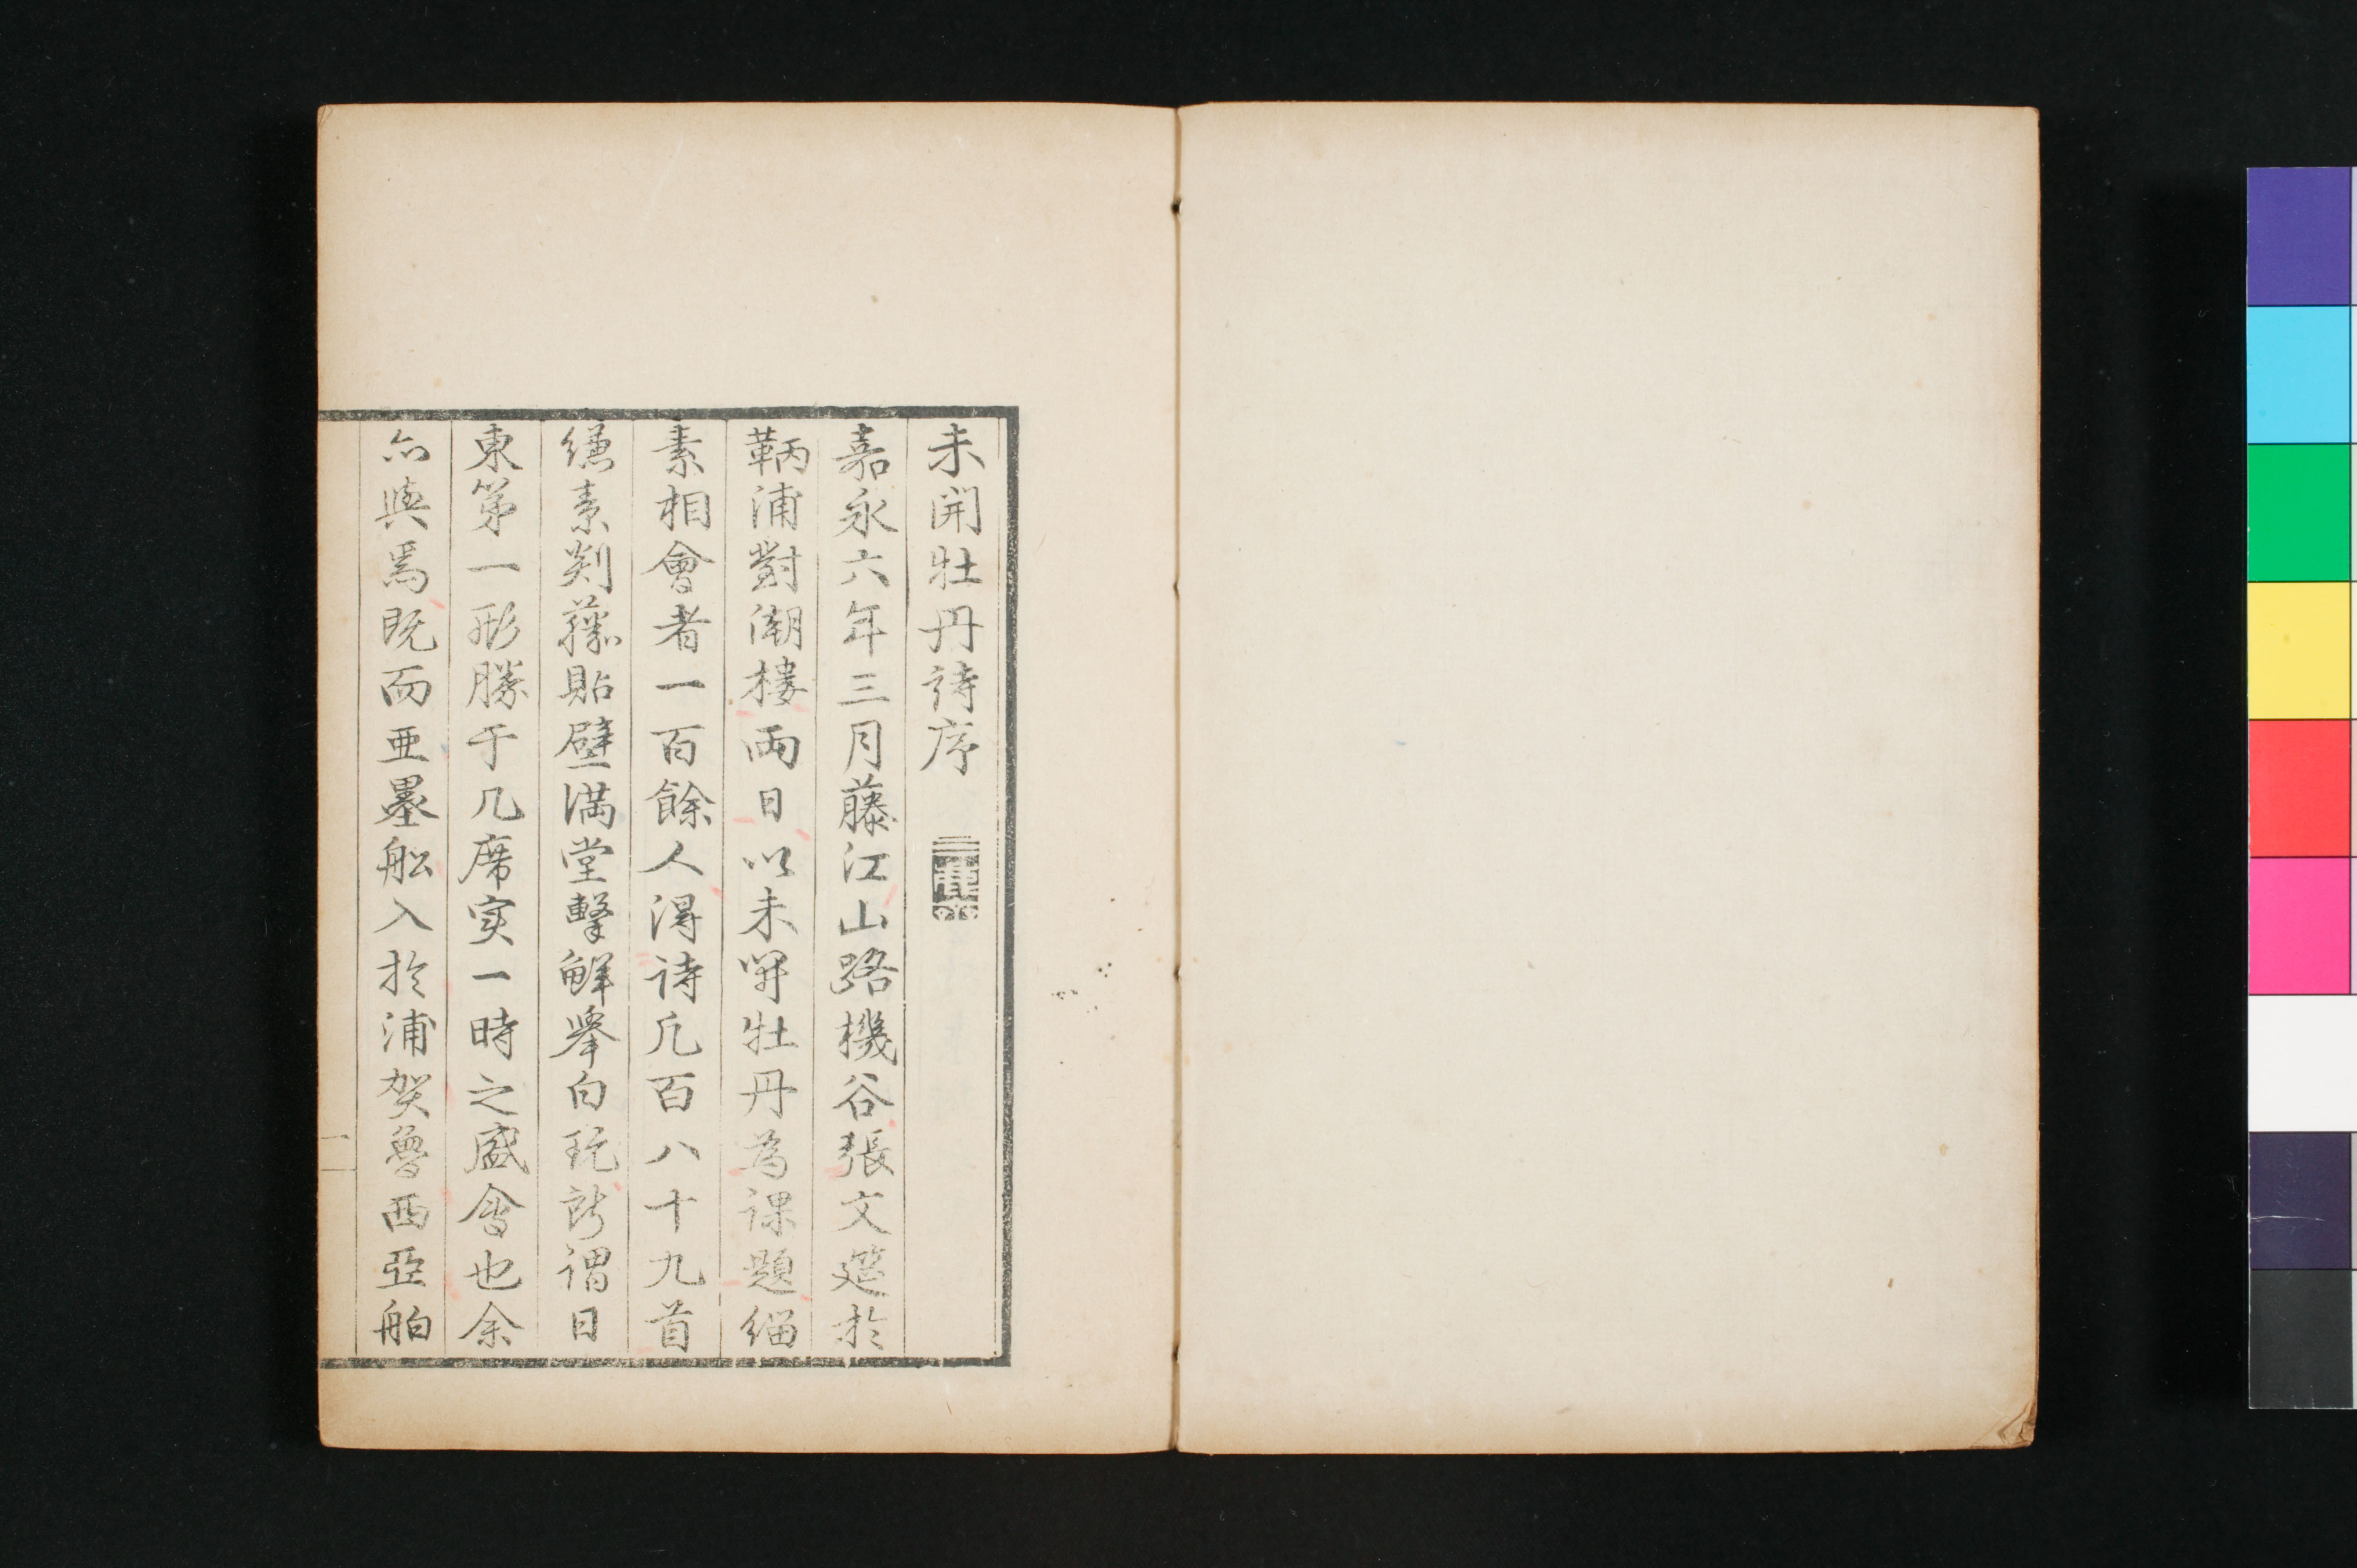 未開牡丹詩序
嘉永六年三月藤江山路機谷張文筵於
鞆浦對潮樓兩日以未開牡丹為課題緇
素相會者一百餘人得詩凢百八十九首
縑素剡藤貼壁満堂擊鮮舉白玩謂日
東第一形勝于几席実一時之盛會也余
亦與焉既而亜墨舩入於浦賀魯西亞舶
一